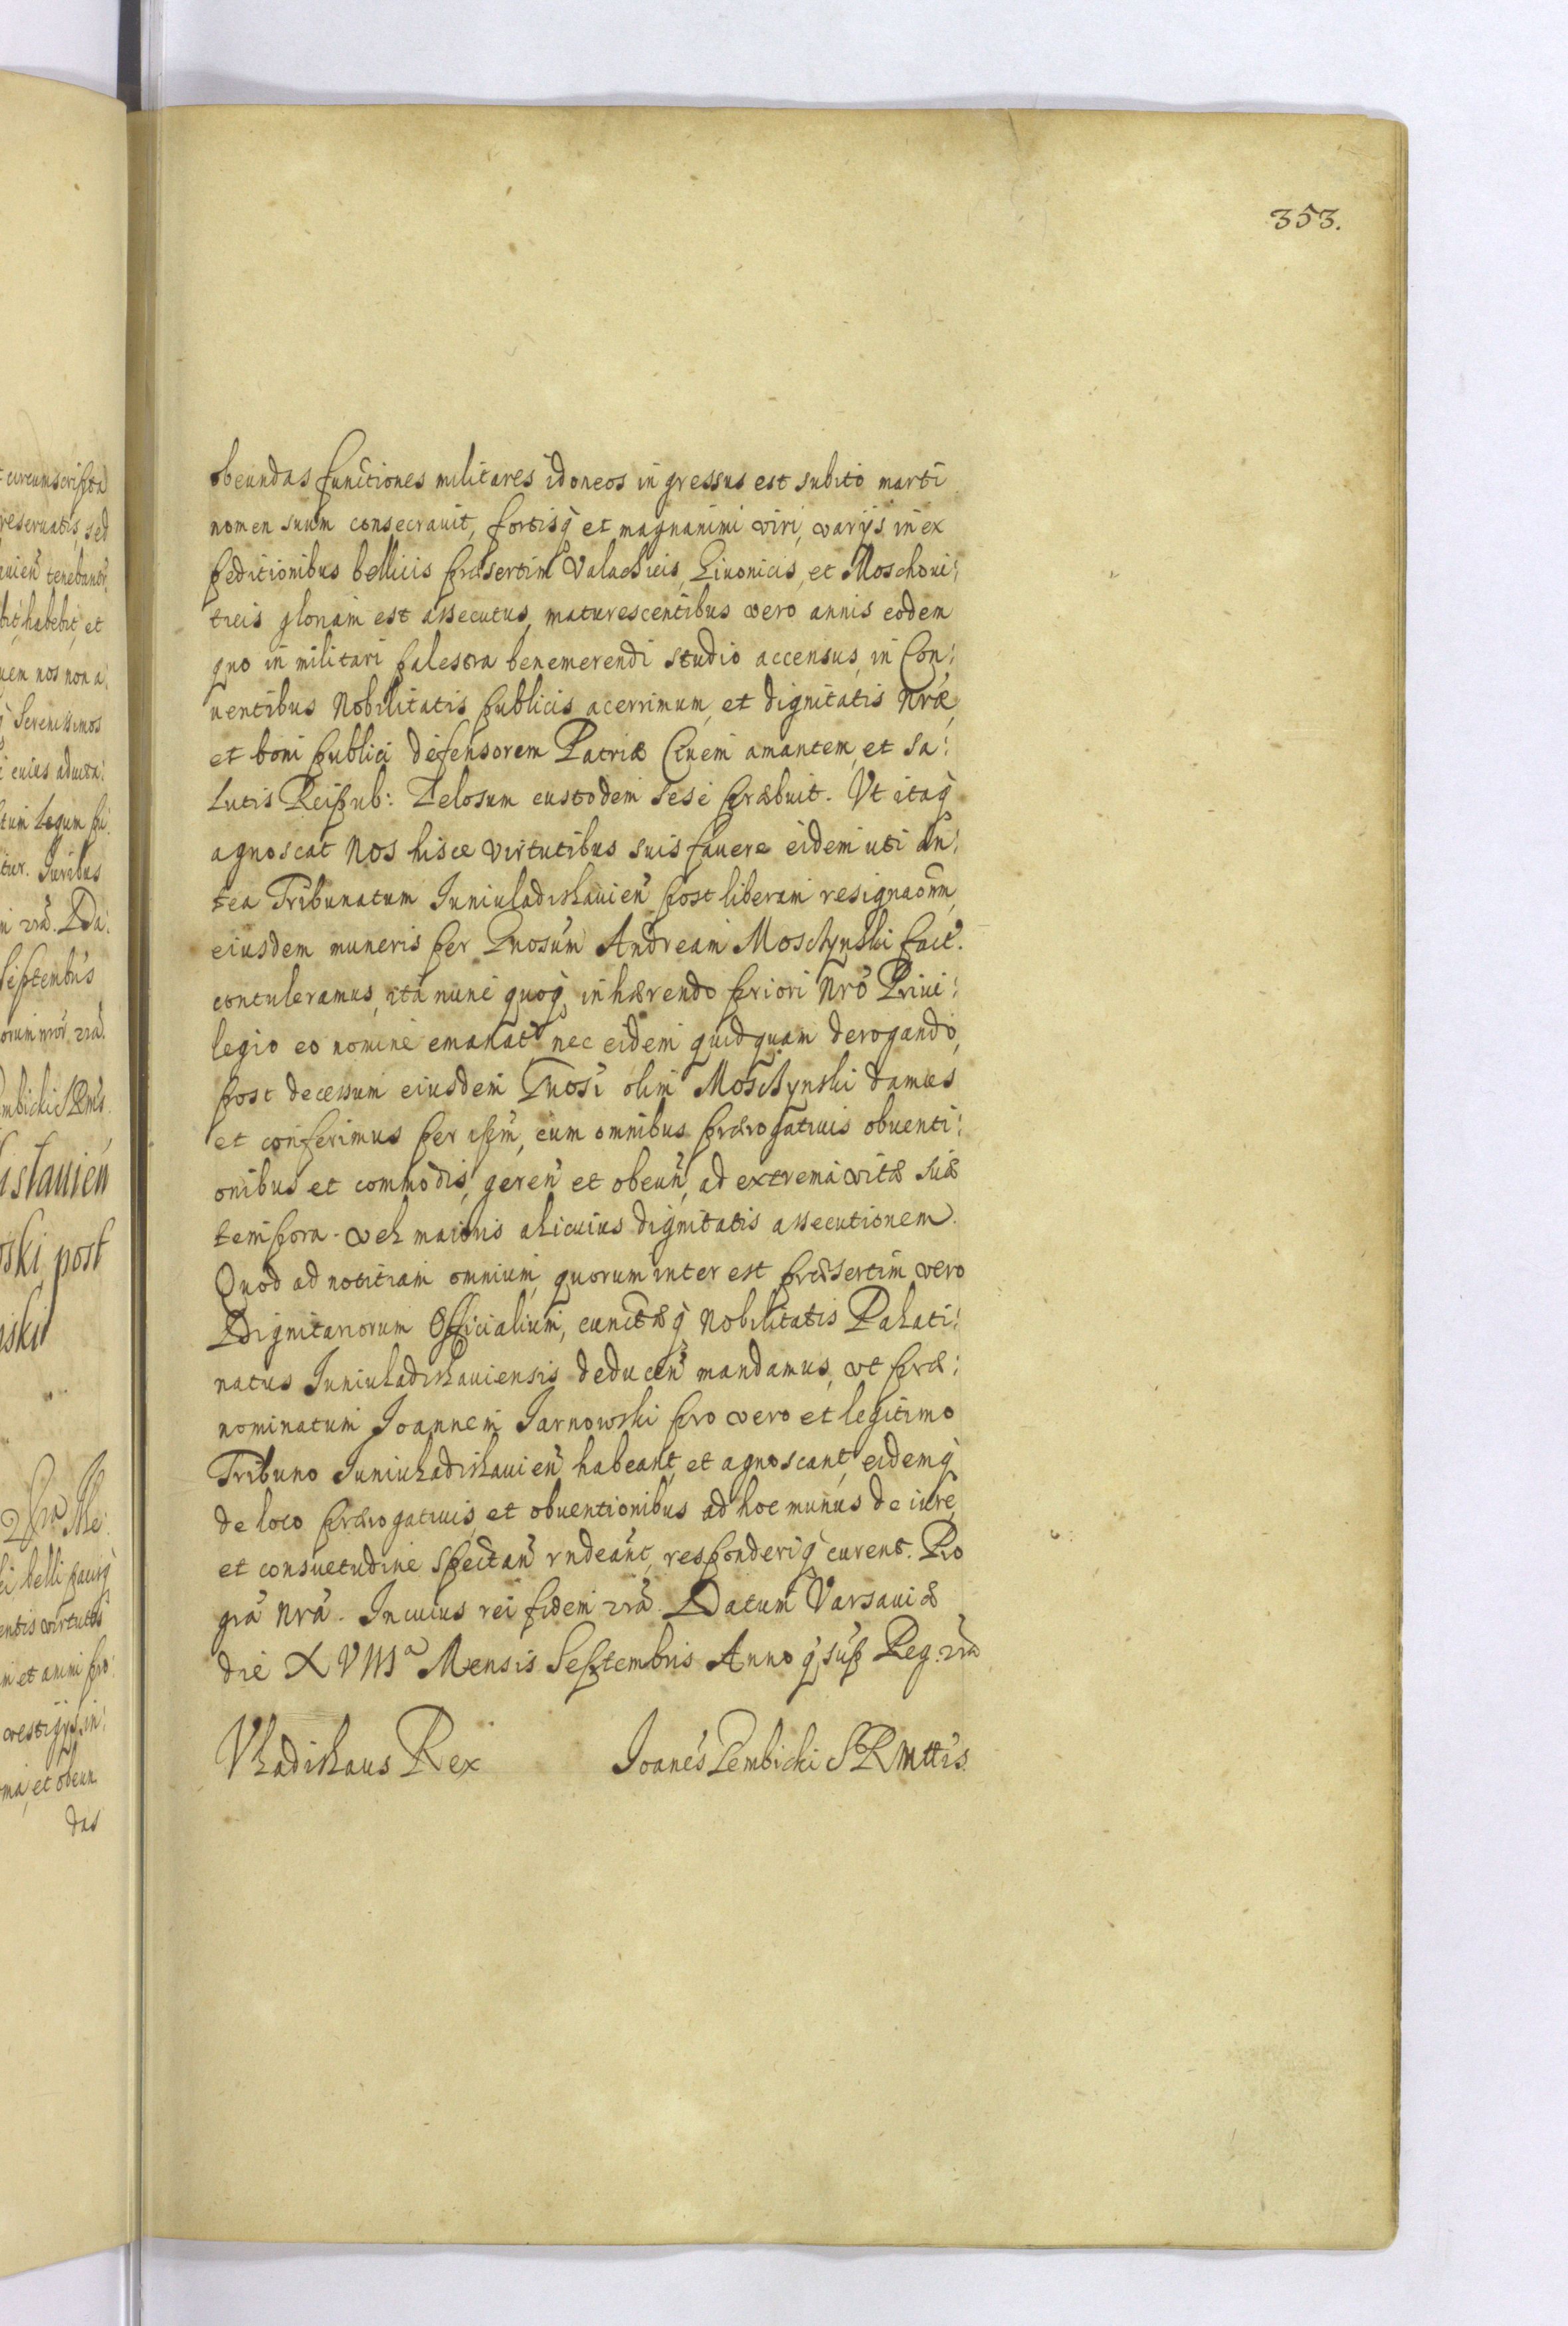 353.
obeundas functiones militares idoneos ingressus est subito marti
nomen suum consecrauit, fortisq̀ et magnanimi viri, varijs in ex
peditionibus bellicis præsertim Valachicis, Liuonicis, et Moschoui:
ticis gloriam est assecutus, maturescentibus vero annis eodem
quo in militari palestra benemerendi studio accensus, in Con:
uentibus Nobilitatis publicis acerrimum, et dignitatis Nræ,
et boni publici defensorem Patriæ Ciuem amantem, et sa:
lutis Reipub: Zelosum custodem sese præbuit. Vt itaq̀
agnoscat Nos hisce virtutibus suis fauere eidem uti an:
tea Tribunatum Iuniuladislauien̄ post liberam resignaōnm,
eiusdem muneris per Gnosum Andream Moschynski fact.
contuleramus, ita nunc quoq̀ inhærendo priori Nrō Priui:
legio eo nomine emanato nec eidem quidquam derogando,
post decessum eiusdem Gnosi olim Moschynski damus
et conferimus per ipm̄, cum omnibus prærogatiuis obuenti:
onibus et commodis, geren̄ et obeun̄, ad extrema vitæ suæ
tempora. vel maioris alicuius dignitatis assecutionem.
Quod ad notitiam omnium, quorum inter est præsertim vero
Dignitariorum Officialium, cunctæq̀ Nobilitatis Palati:
natus Iuniuladislauiensis deducen̄ mandamus, vt præ:
nominatum Joannem Jarnowski pro vero et legitimo
Tribuno Iuniuladislauien̄ habeant, et agnoscant, eidemq̀
de loco prærogatiuis, et obuentionibus ad hoc munus de iure,
et consuetudine spectan̄ rndeant, responderiq̀ curent. Pro
grā Nrā. In cuius rei fidem
Datum Varsauiæ
die XVIIIa Mensis Septembris Anno q̀ sup̄ Reg.
Vladislaus Rex Joanes Lembicki S R Mttis.
circumscripta
reseruatis, sed
uien̄ tenebantr
bit, habebit, et
uem nos non a:
q̀ Serenissimos
Iuribus
Septembris
islauien
ski post
belli pacisq̀
entis virtutes
vestigijs in:
ma, et obeun
das